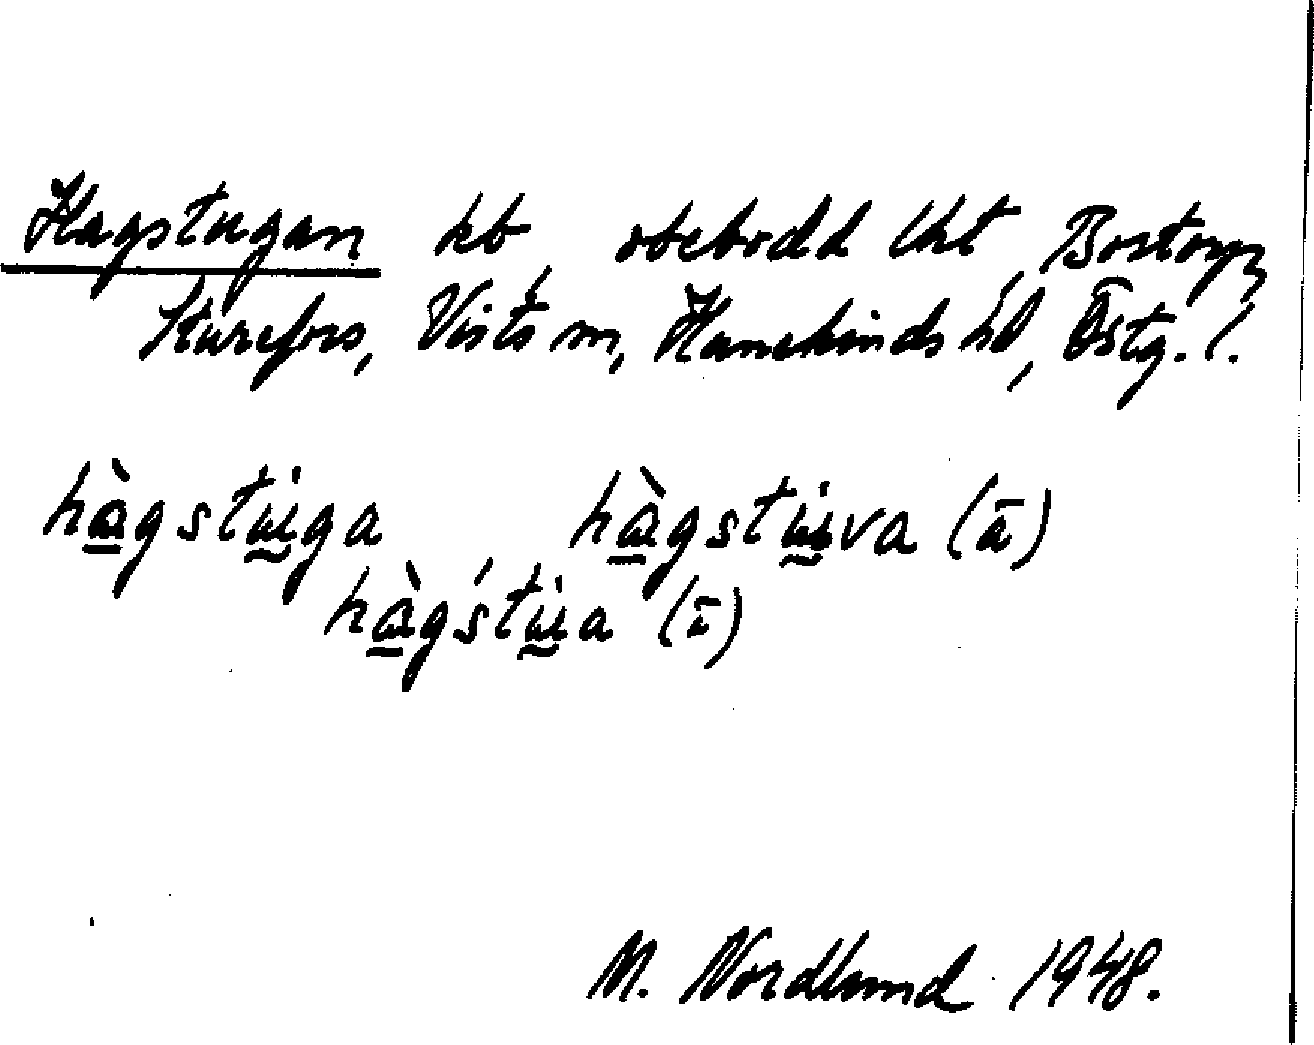 Hagstugan kb, obebodd lht, Bostorp,
Sturefors, Vists sn, Hanekinds hd, Östg. l.
hàgstu̇ga hàgstu̇va (ā)
hàgstu̇a (ā)
M. Nordlund 1948.